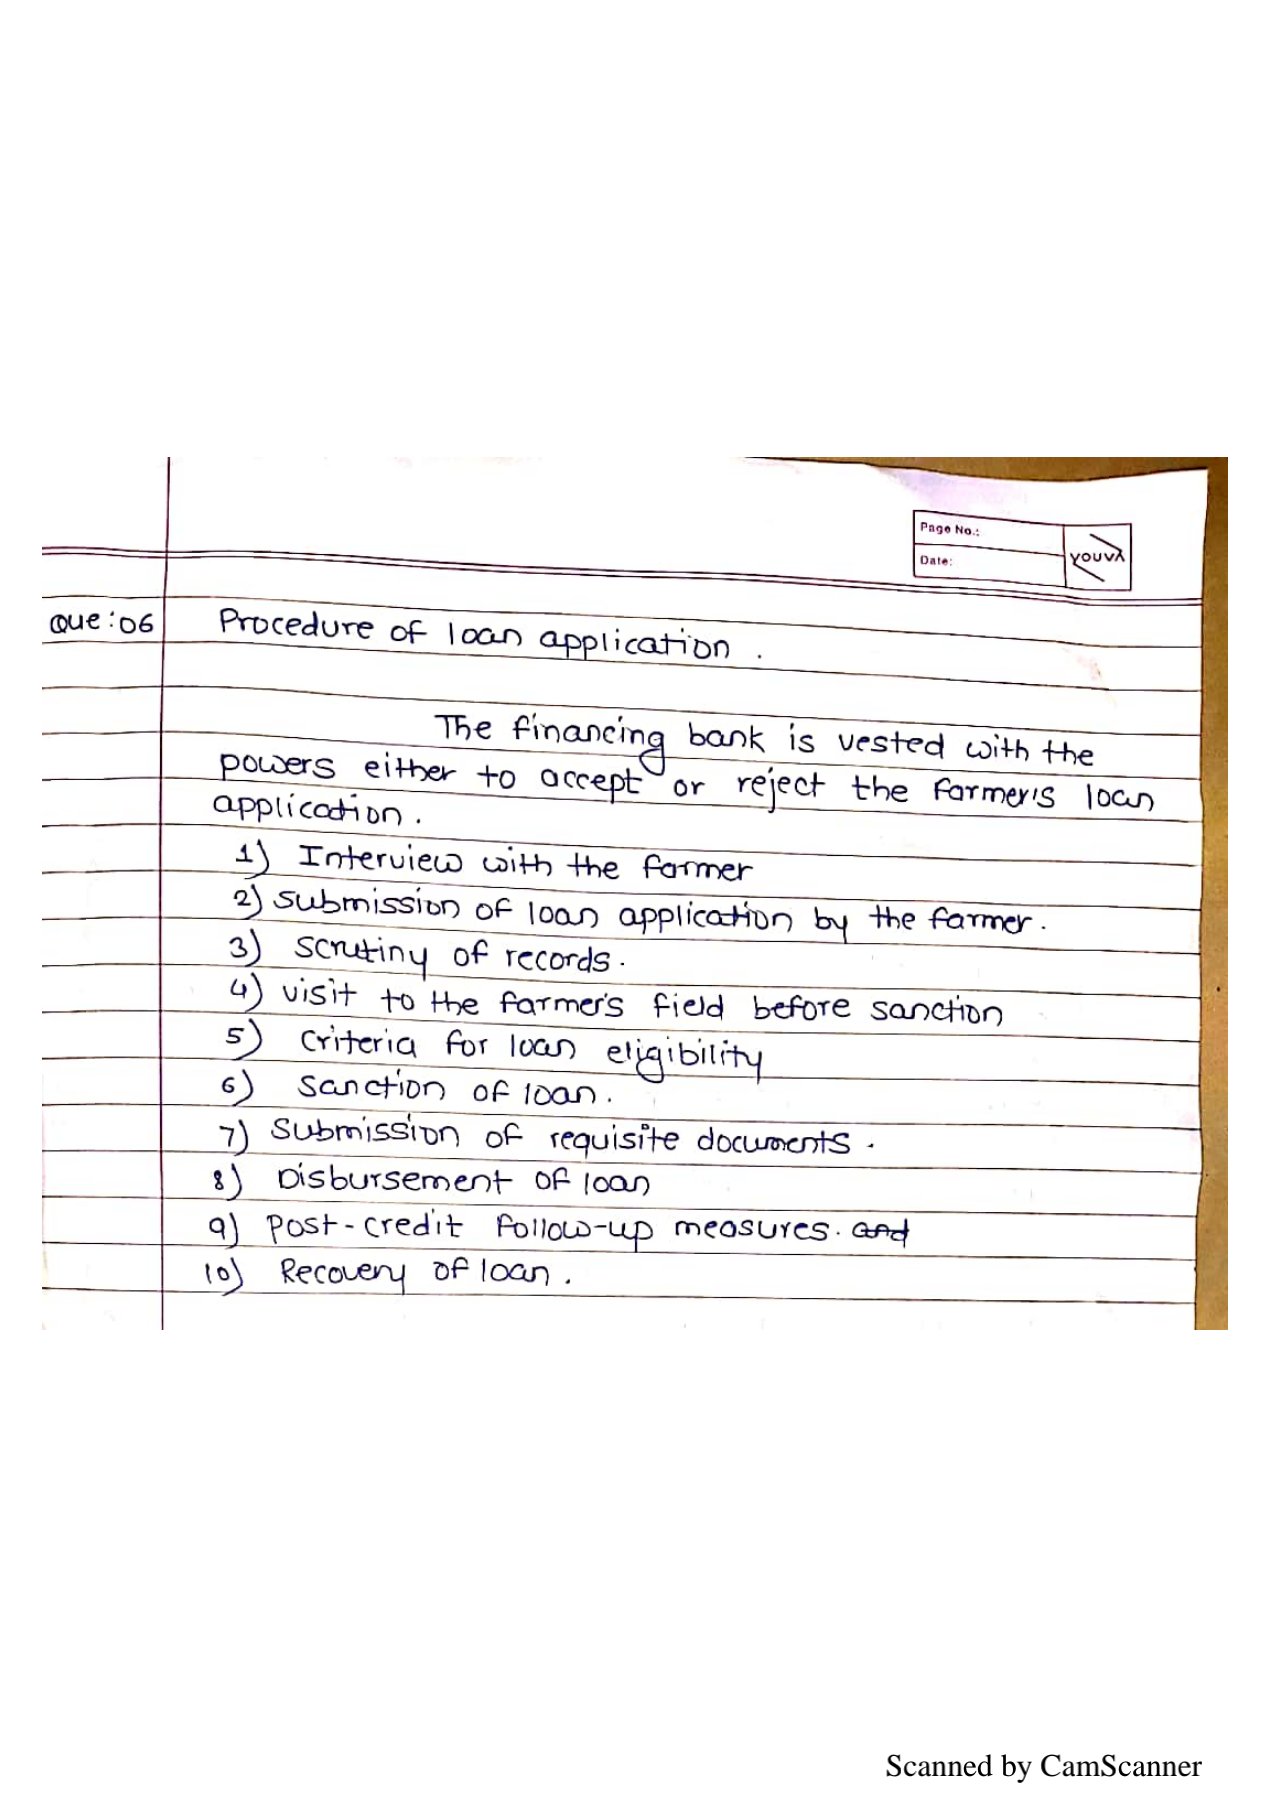 Page No.:
Date:
YOUVA
Que:06 Procedure of loan application.
The financing bank is vested with the
powers either to accept or reject the farmer's loan
application.
1) Interview with the farmer
2) submission of loan application by the farmer.
3) scrutiny of records.
4) visit to the farmer's field before sanction
5) criteria for loan eligibility
6) sanction of loan.
7) submission of requisite documents.
8) Disbursement of loan
9) Post-credit follow-up measures. and
10) Recovery of loan.
Scanned by CamScanner